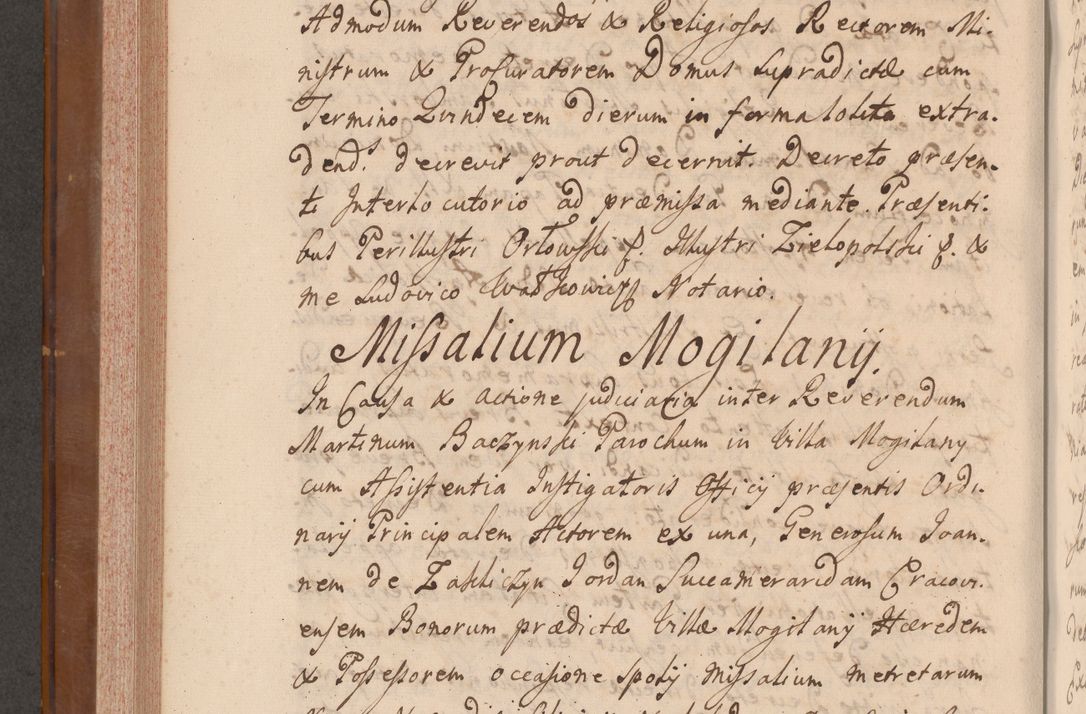 Admodum Reverendos & Religiosos Rectorem Mi-
nistrum & Procuratorem Domus supradictæ cum
Termino Quindecem dierum in forma solita extra-
dends decrevit prout decernit. Decreto præsen-
ti Interlocutorio ad præmissa mediante. Præsenti-
bus Perillustri Orłowski f. Illustri Zielopolski f. &
me Ludovico Notario.
Missalium Mogilanÿ.
In Causa & actione judiciaria inter Reverendum
Martinum Baczynski Parochum in Villa Mogilany
cum Assistentia Instigatoris Officÿ præsentis Ordi-
narÿ Principalem Actorem ex una, Generosum Joan-
nem de Zakliczyn Jordan Succameraridam Cracovi-
ensem Bonorum prædictæ Villæ Mogilanÿ Hæredem
& Possessorem occasione spolÿ missalium metretarum